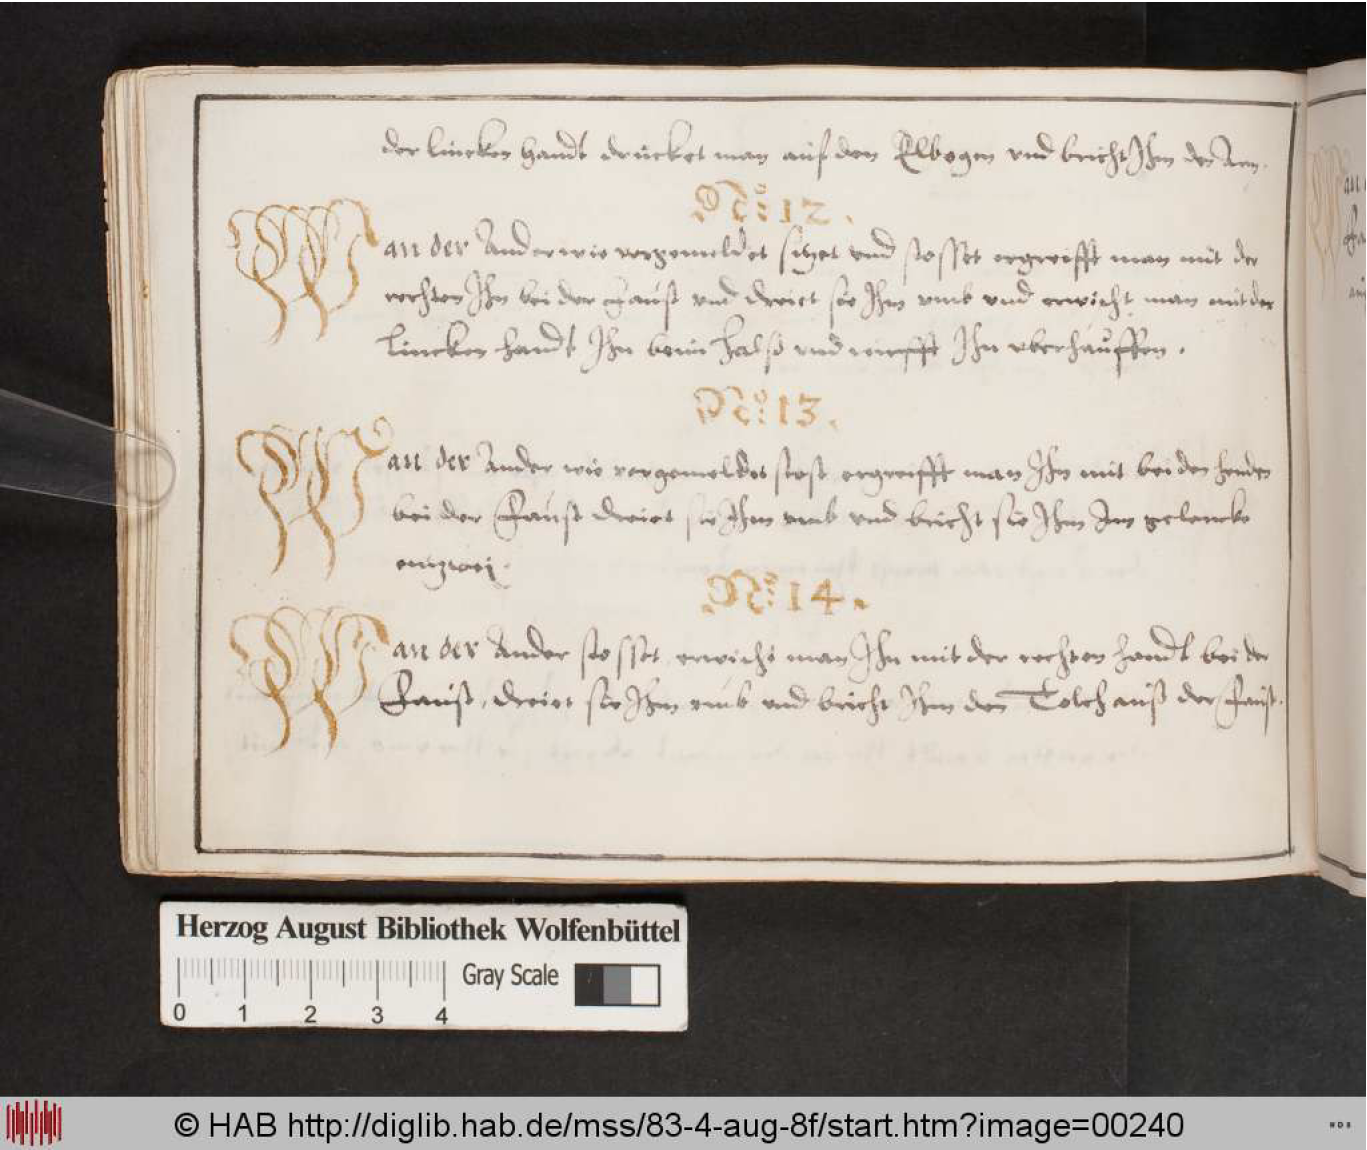 der lincken handt drucket man auf den Elbogen vnd bricht Ihm den Arm.
No: 12.
Wan der Ander wie vorgemeldet sitzet vnd stosset ergreifft man mit der
rechten Ihn bei der Faust vnd dreiet sie Ihm vmb vnd erwischt man mit der
lincken handt Ihn beim halß vnd wirfft Ihn vberhauffen.
No: 13.
Wan der Ander wie vorgemeldet stost ergreifft man Ihn mit beiden henden
bei der Faust dreiet sie Ihm vmb vnd bricht sie Ihm Im gelencke
entzwei.
No: 14.
Wan der Ander stosset erwischt man Ihn mit der rechten handt bei der
Faust, dreiet sie Ihm vmb vnd bricht Ihm den Tolch auß der Faust.
Herzog August Bibliothek Wolfenbüttel
Gray Scale
0 1 2 3 4
© HAB http://diglib.hab.de/mss/83-4-aug-8f/start.htm?image=00240